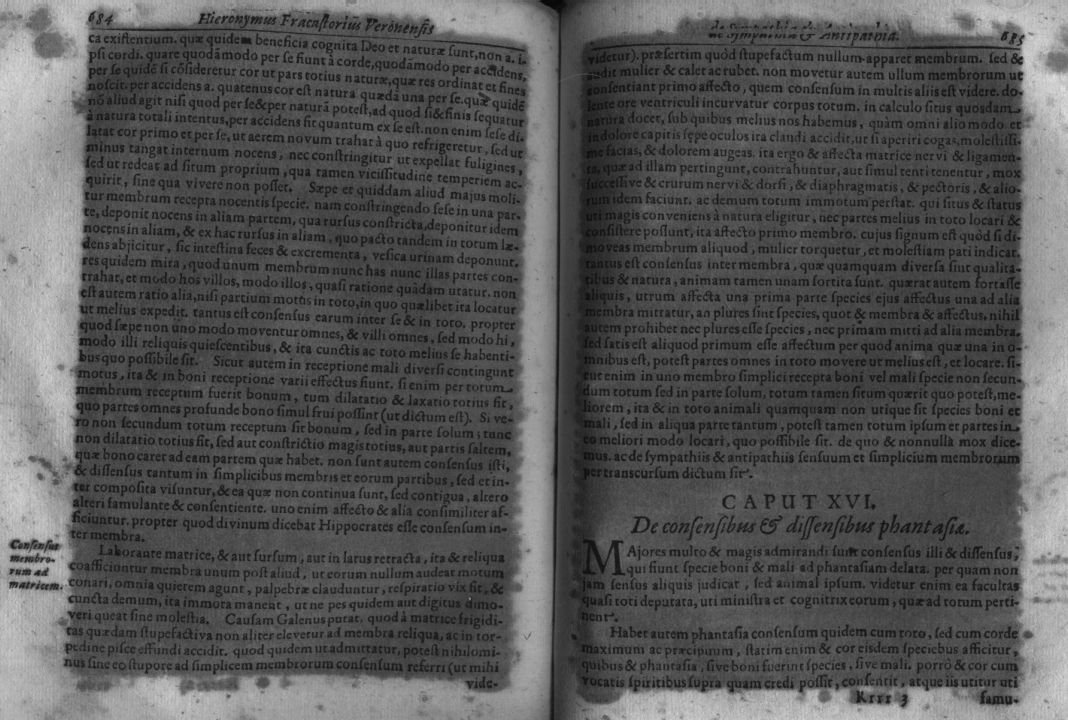 684 Hieronymus Fracastorius Veronensis
ca existentium. quæ quidem beneficia cognita Deo et naturæ sunt, non a. i.
psi cordi. quare quodãmodo per se fiunt à corde, quodãmodo per accidens,
per se quidẽ si cõsideretur cor ut pars totius naturæ, quæ res ordinat et fines
noscit. per accidens a. quatenus cor est natura quædã una per se. quæ quidẽ
nõ aliud agit nisi quod per se & per naturã potest, ad quod si & finis sequatur
à natura totali intentus, per accidens fit quantum ex se est. non enim sese di-
latat cor primo et per se, ut aerem novum trahat à quo refrigeretur, sed ut
minus tangat internum nocens, nec constringitur ut expellat fuligines,
sed ut redeat ad situm proprium, qua tamen vicissitudine temperiem ac-
quirit, sine qua vivere non posset. Sæpe et quiddam aliud majus moli-
tur membrum recepta nocentis specie. nam constringendo sese in una par-
te, deponit nocens in aliam partem, qua rursus constricta, deponitur idem
nocens in aliam, & ex hac rursus in aliam, quo pacto tandem in totum læ-
dens abjicitur, sic intestina feces & excrementa, vesica urinam deponunt.
res quidem mira, quod unum membrum nunc has nunc illas partes con-
trahat, et modo hos villos, modo illos, quasi ratione quâdam utatur. non
est autem ratio alia, nisi partium motus in toto, in quo quælibet ita locatur
ut melius expedit. tantus est consensus earum inter se & in toto. propter
quod sæpe non uno modo moventur omnes, & villi omnes, sed modo hi,
modo illi reliquis quiescentibus, & ita cunctis ac toto melius se habenti-
bus quo possibile sit. Sicut autem in receptione mali diversi contingunt
motus, ita & in boni receptione varii effectus fiunt. si enim per totum
membrum receptum fuerit bonum, tum dilatatio & laxatio totius fit,
quo partes omnes profunde bono simul frui possint (ut dictum est). Si ve-
ro non secundum totum receptum sit bonum, sed in parte solum; tunc
non dilatatio totius fit, sed aut constrictio magis totius, aut partis saltem,
quæ bono caret ad eam partem quæ habet. non sunt autem consensus isti,
& dissensus tantum in simplicibus membris et eorum partibus, sed et in-
ter composita visuntur, & ea quæ non continua sunt, sed contigua, altero
alteri famulante & consentiente. uno enim affecto & alia consimiliter af-
ficiuntur. propter quod divinum dicebat Hippocrates esse consensum in-
ter membra.
Consensus
membro-
rum ad
matricem.
Laborante matrice, & aut sursum, aut in latus retracta, ita & reliqua
coafficiontur membra unum post aliud, ut eorum nullum audeat motum
conari, omnia quietem agunt, palpebræ clauduntur, respiratio vix fit, &
cuncta demum, ita immota manent, ut ne pes quidem aut digitus dimo-
veri queat sine molestia. Causam Galenus putat. quod à matrice frigidi-
tas quædam stupefactiva non aliter elevetur ad membra reliqua, ac in tor-
pedine pisce effundi accidit. quod quidem ut admittatur, potest nihilomi-
nus sine eo stupore ad simplicem membrorum consensum referri (ut mihi
vide-
de Sympathia & Antipathia. 685
videtur). præsertim quòd stupefactum nullum apparet membrum. sed &
audit mulier & calet ac rubet. non movetur autem ullum membrorum ut
consentiant primo affecto, quem consensum in multis aliis est videre. do-
lente ore ventriculi incurvatur corpus totum. in calculo situs quosdam
natura docet, sub quibus melius nos habemus, quàm omni alio modo. et
in dolore capitis sępe oculos ita claudi accidit, ut si aperiri cogas, molestissi-
me facias, & dolorem augeas. ita ergo & affecta matrice nervi & ligamen-
ta, quæ ad illam pertingunt, contrahuntur, aut simul tenti tenentur, mox
successive & crurum nervi & dorsi, & diaphragmatis, & pectoris, & alio-
rum idem faciunt. ac demum totum immotum perstat. qui situs & status
uti magis conveniens à natura eligitur, nec partes melius in toto locari &
consistere possunt, ita affecto primo membro. cujus signum est quòd si di-
moveas membrum aliquod, mulier torquetur, et molestiam pati indicat.
tantus est consensus inter membra, quæ quamquam diversa sint qualita-
tibus & natura, animam tamen unam sortita sunt. quærat autem fortasse
aliquis, utrum affecta una prima parte species ejus affectus una ad alia
membra mittatur, an plures sint species, quot & membra & affectus. nihil
autem prohibet nec plures esse species, nec primam mitti ad alia membra.
sed satis est aliquod primum esse affectum per quod anima quæ una in o-
mnibus est, potest partes omnes in toto movere ut melius est, et locare. si-
cut enim in uno membro simplici recepta boni vel mali specie non secun-
dum totum sed in parte solum, totum tamen situm quærit quo potest, me-
liorem, ita & in toto animali quamquam non utique sit species boni et
mali, sed in aliqua parte tantum, potest tamen totum ipsum et partes in
eo meliori modo locari, quo possibile sit. de quo & nonnulla mox dice-
mus. ac de sympathiis & antipathiis sensuum et simplicium membrorum
per transcursum dictum sit.
CAPUT XVI.
De consensibus & dissensibus phantasiæ.
MAjores multo & magis admirandi sunt consensus illi & dissensus,
qui fiunt specie boni & mali ad phantasiam delata. per quam non
jam sensus aliquis judicat, sed animal ipsum. videtur enim ea facultas
quasi toti deputata, uti ministra et cognitrix eorum, quæ ad totum perti-
nent.
Habet autem phantasia consensum quidem cum toto, sed cum corde
maximum ac præcipuum, statim enim & cor eisdem speciebus afficitur,
quibus & phantasia, sive boni fuerint species, sive mali. porrò & cor cum
vocatis spiritibus supra quam credi possit, consentit, atque iis utitur uti
Krrr 3 famu-